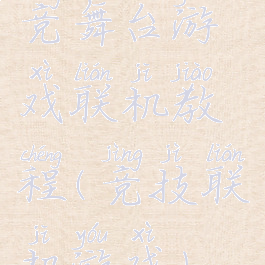 竞舞台游
xì lián jī jiào
戏联机教
chéng jìng jì lián
程(竞技联
jī yóu xì
机游戏)